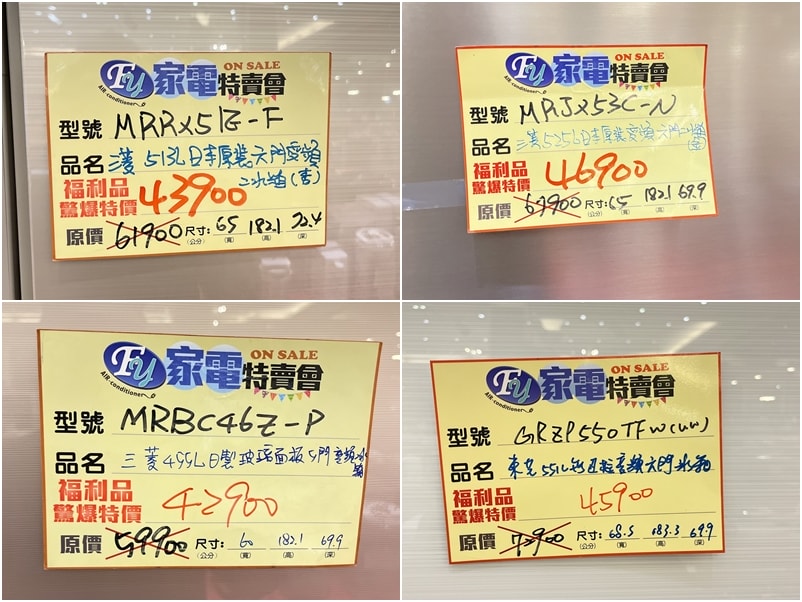 FY 家電特賣會 ON SALE
AIR-conditioner
型號 MRRX51Z-F
品名 三菱 513L日本原裝六門變頻
冰箱(杏)
福利品
驚爆特價 43900
原價 61900 尺寸: 65 182.1 72.4
(公分) (寬) (高) (深)
FY 家電特賣會 ON SALE
AIR-conditioner
型號 MRJX53C-N
品名 三菱525L日本原裝變頻六門冰箱
(金)
福利品
驚爆特價 46900
原價 67900 尺寸: 65 182.1 69.9
(公分) (寬) (高) (深)
FY 家電特賣會 ON SALE
AIR-conditioner
型號 MRBC46Z-P
品名 三菱455L日製玻璃面板5門變頻冰
箱
福利品
驚爆特價 42900
原價 59900 尺寸: 60 182.1 69.9
(公分) (寬) (高) (深)
FY 家電特賣會 ON SALE
AIR-conditioner
型號 GRZP550TFW(UW)
品名 東芝551L 變頻六門冰箱
福利品
驚爆特價 45900
原價 72900 尺寸: 68.5 183.3 69.9
(公分) (寬) (高) (深)